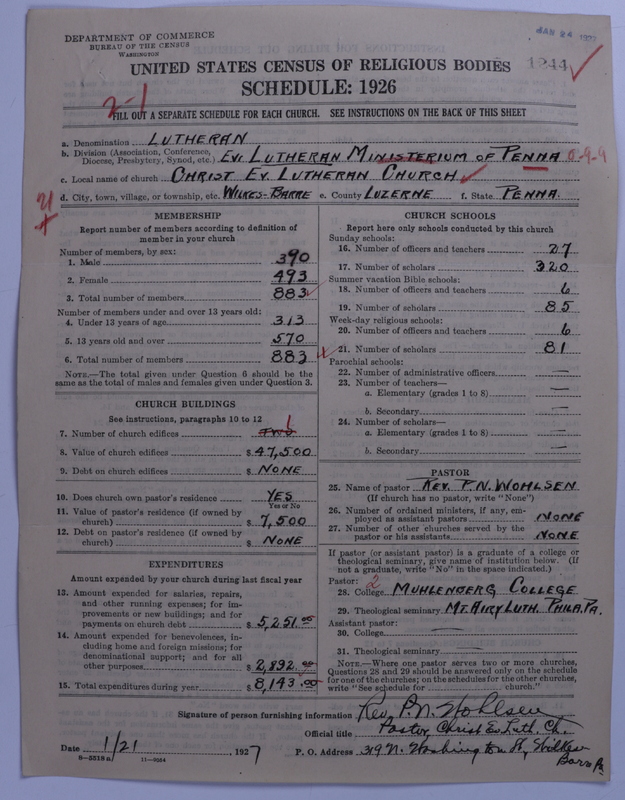 DEPARTMENT OF COMMERCE
BUREAU OF THE CENSUS
WASHINGTON
JAN 24 1927
1244
UNITED STATES CENSUS OF RELIGIOUS BODIES
SCHEDULE: 1926
2-1
FILL OUT A SEPARATE SCHEDULE FOR EACH CHURCH. SEE INSTRUCTIONS ON THE BACK OF THIS SHEET
a. Denomination LUTHERAN
b. Division (Association, Conference, Diocese, Presbytery, Synod, etc.) EV. LUTHERAN MINISTERIUM OF PENNA
c. Local name of church CHRIST EV. LUTHERAN CHURCH
d. City, town, village, or township, etc. WILKES-BARRE e. County LUZERNE f. State PENNA.
MEMBERSHIP
Report number of members according to definition of
member in your church
Number of members, by sex:
1. Male 390
2. Female 493
3. Total number of members 883
Number of members under and over 13 years old:
4. Under 13 years of age 313
5. 13 years old and over 570
6. Total number of members 883
NOTE.—The total given under Question 6 should be the
same as the total of males and females given under Question 3.
CHURCH BUILDINGS
See instructions, paragraphs 10 to 12
7. Number of church edifices TWO 1
8. Value of church edifices $ 47,500
9. Debt on church edifices $ NONE
10. Does church own pastor's residence YES
Yes or No
11. Value of pastor's residence (if owned by
church) $ 7,500
12. Debt on pastor's residence (if owned by
church) $ NONE
EXPENDITURES
Amount expended by your church during last fiscal year
13. Amount expended for salaries, repairs,
and other running expenses; for im-
provements or new buildings; and for
payments on church debt $ 5,251.00
14. Amount expended for benevolences, in-
cluding home and foreign missions; for
denominational support; and for all
other purposes $ 2,892.00
15. Total expenditures during year $ 8,143.00
CHURCH SCHOOLS
Report here only schools conducted by this church
Sunday schools:
16. Number of officers and teachers 27
17. Number of scholars 320
Summer vacation Bible schools:
18. Number of officers and teachers 6
19. Number of scholars 85
Week-day religious schools:
20. Number of officers and teachers 6
21. Number of scholars 81
Parochial schools:
22. Number of administrative officers —
23. Number of teachers—
a. Elementary (grades 1 to 8) —
b. Secondary —
24. Number of scholars—
a. Elementary (grades 1 to 8) —
b. Secondary —
PASTOR
25. Name of pastor REV. P.N. WOHLSEN
(If church has no pastor, write "None")
26. Number of ordained ministers, if any, em-
ployed as assistant pastors NONE
27. Number of other churches served by the
pastor or his assistants NONE
If pastor (or assistant pastor) is a graduate of a college or
theological seminary, give name of institution below. (If
not a graduate, write "No" in the space indicated.)
Pastor: 2
28. College MUHLENBERG COLLEGE
29. Theological seminary MT. AIRY LUTH. PHILA. PA.
Assistant pastor:
30. College —
31. Theological seminary —
NOTE.—Where one pastor serves two or more churches,
Questions 28 and 29 should be answered only on the schedule
for one of the churches; on the schedules for the other churches,
write "See schedule for church."
Signature of person furnishing information Rev. P.N. Wohlsen
Official title Pastor, Christ Ev. Luth. Ch.
Date 1/21, 1927 P. O. Address 319 N. Washington St, Wilkes
Barre Pa
8-5318a 11-9564